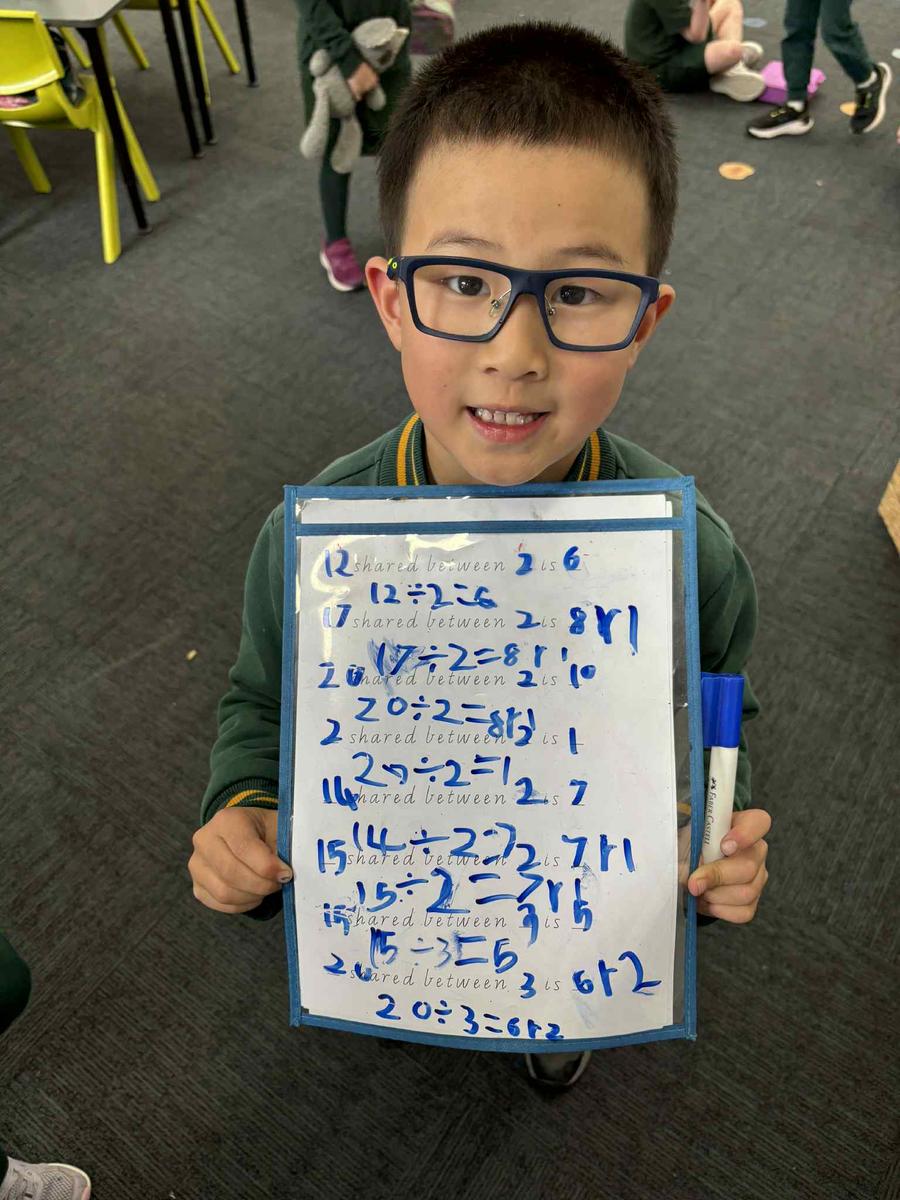 12 shared between 2 is 6
12÷2=6
17 shared between 2 is 8 r1
17÷2=8 r1
20 shared between 2 is 10
20÷2=8r1
2 shared between 2 is 1
÷2=1
14 shared between 2 is 7
14÷2=7
15 shared between 2 is 7 r1
15÷2=7r1
15 shared between 3 is 5
15÷3=5
20 shared between 3 is 6r2
20÷3=6r2
FABER-CASTELL